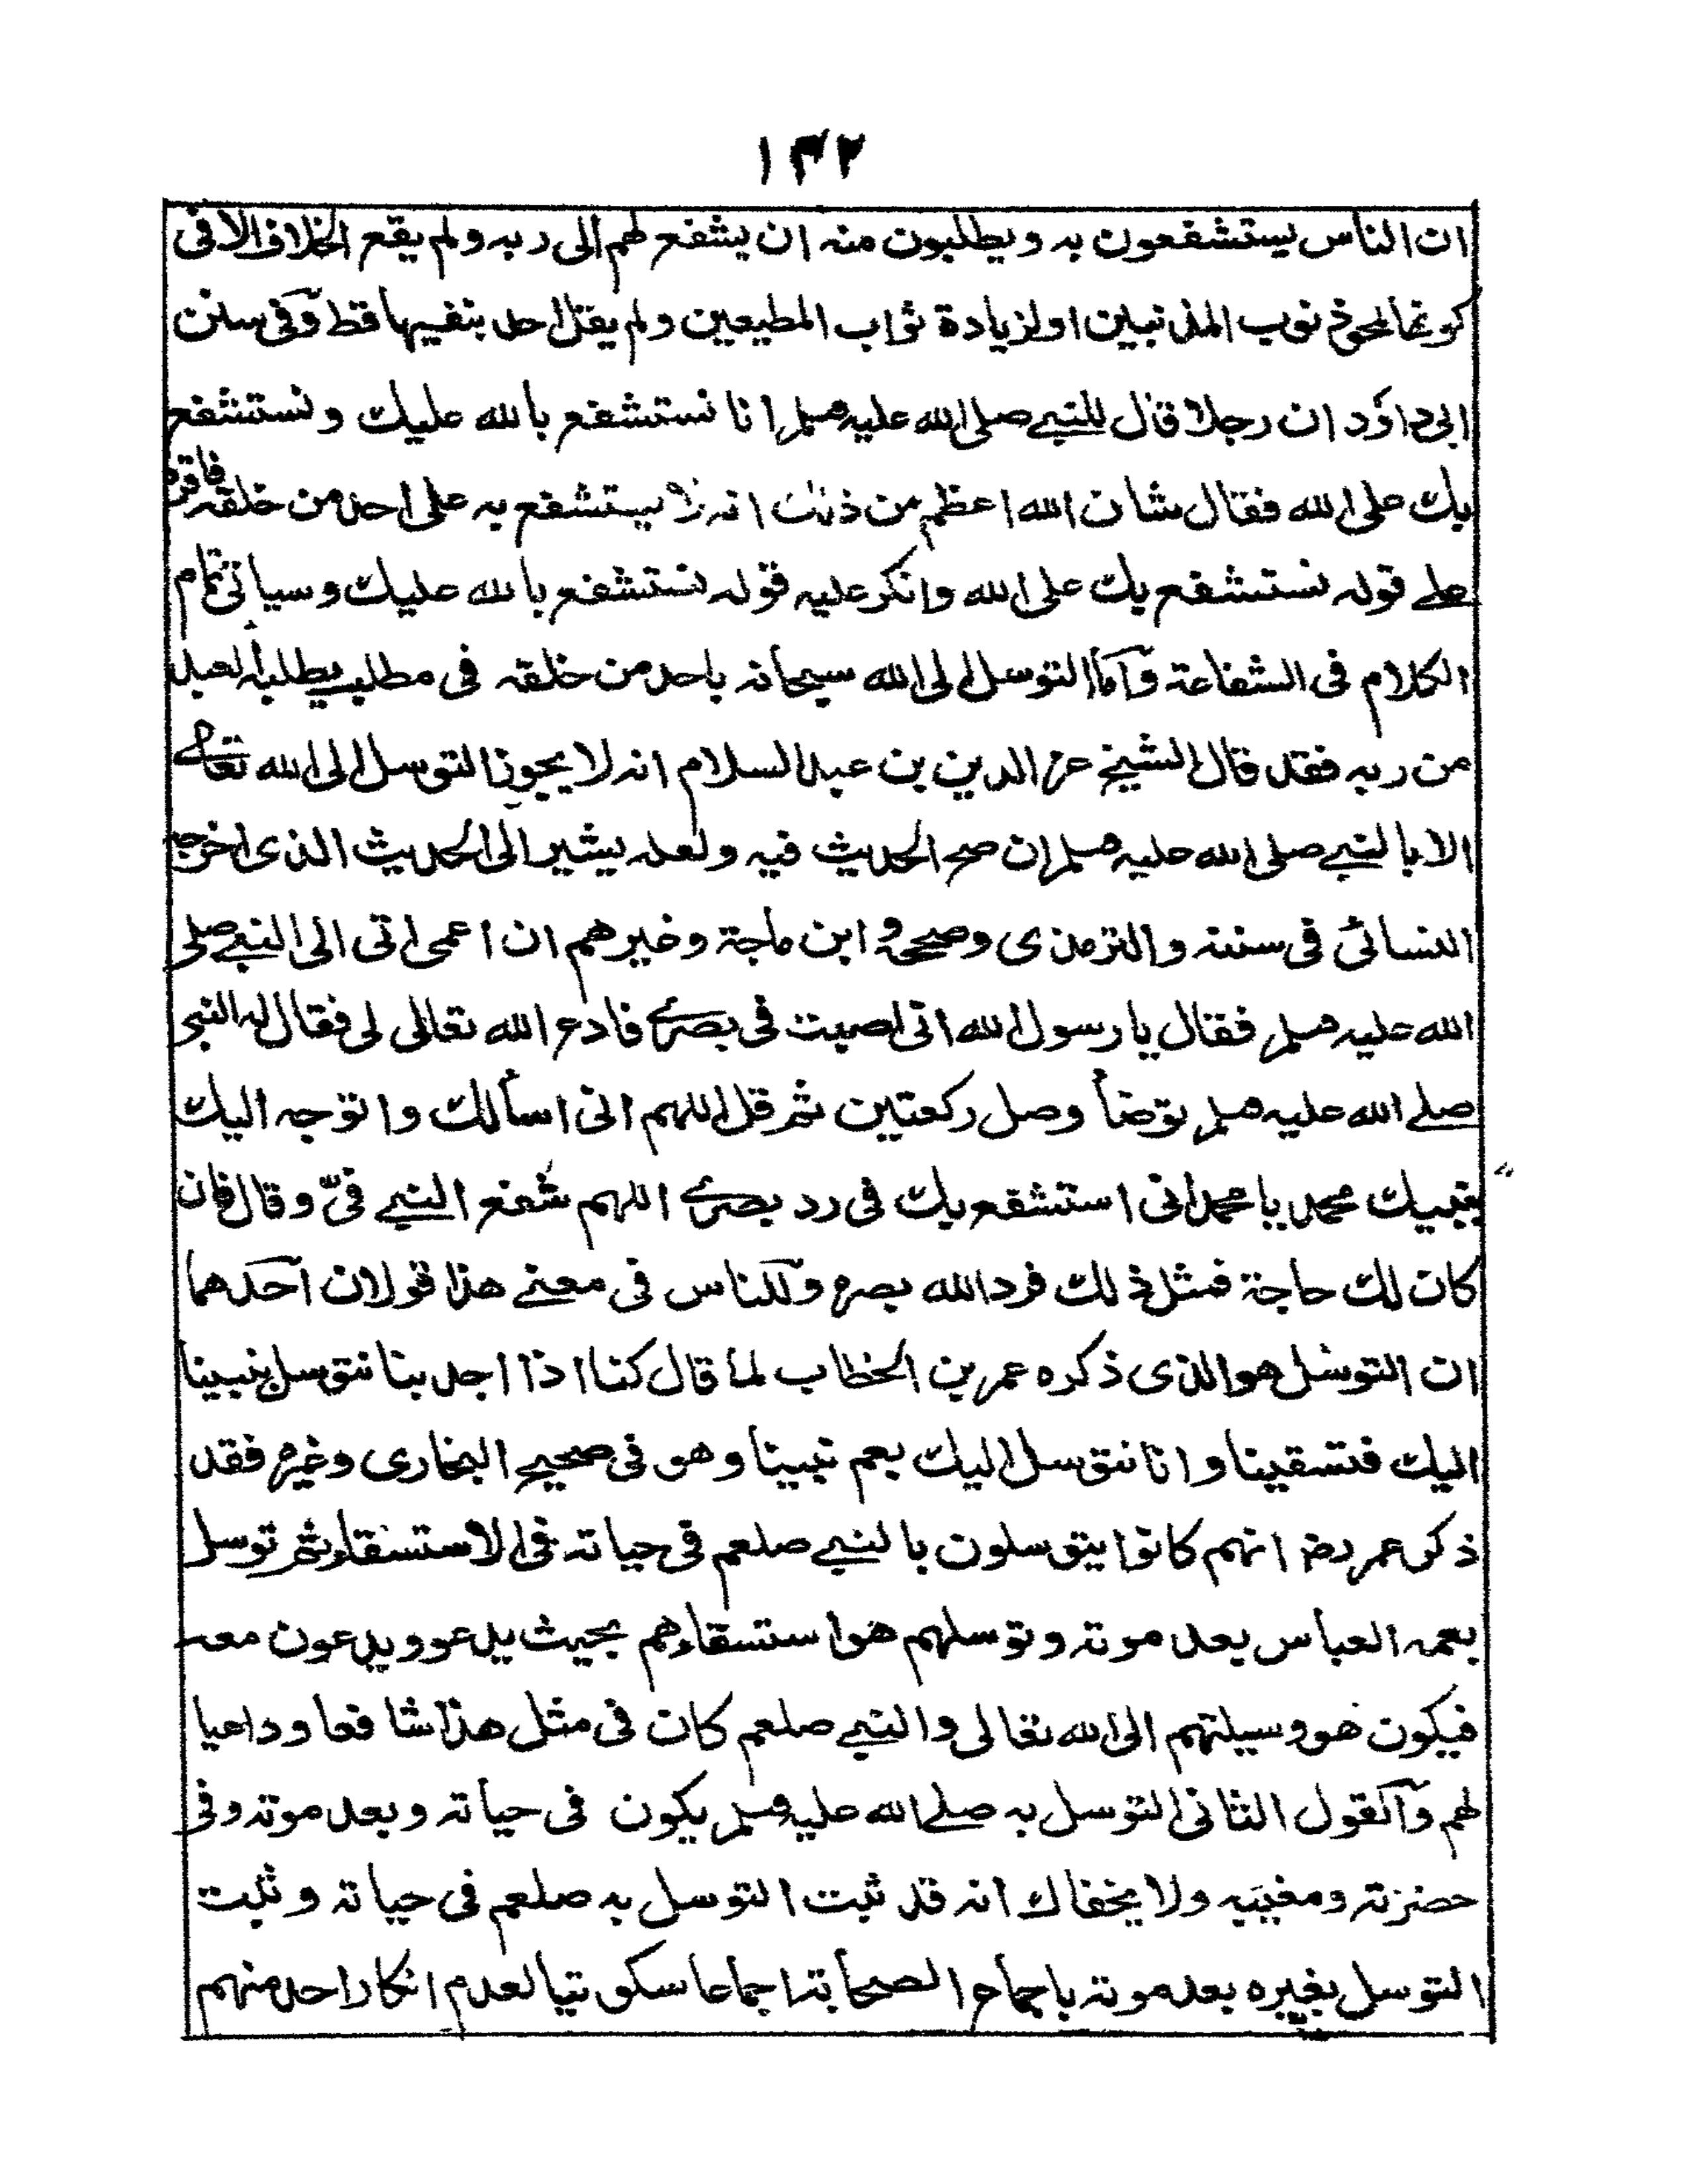 ۱۴۲
ان الناس يستشفعون به ويطلبون منه ان يشفع لهم الى ربه ولم يقع الخلاف الا فى
كونها لمحو ذنوب المذنبين او لزيادة ثواب المطيعين ولم يقل احد بنفيها قط وفى سنن
ابى داؤد ان رجلا قال للنبے صلى الله عليه وسلم انا نستشفع بالله عليك ونستشفع
بك على الله فقال شان الله اعظم من ذلك انه لا يستشفع به على احد من خلقه فاقره
علے قوله نستشفع بك على الله وانكر عليه قوله نستشفع بالله عليك وسياتى تمام
الكلام فى الشفاعة وآما التوسل الى الله سبحانه باحد من خلقه فى مطلب يطلبه العبد
من ربه فقد قال الشيخ عز الدين بن عبد السلام انه لا يجوز التوسل الى الله تعالے
الا بالنبے صلى الله عليه وسلم ان صح الحديث فيه ولعله يشير الى الحديث الذى اخرجه
النسائى فى سننه والترمذى وصححه وابن ماجة وغيرهم ان اعمى اتى الى النبے صلى
الله عليه وسلم فقال يا رسول الله انى اصبت فى بصرے فادع الله تعالى لى فقال له النبى
صلے الله عليه وسلم توضأ وصل ركعتين ثم قل اللهم انى اسألك واتوجه اليك
بنبيك محمد يا محمد انى استشفع بك فى رد بصرے اللهم شفع النبے فىّ وقال فان
كان لك حاجة فمثل ذلك فرد الله بصره وللناس فى معنے هذا قولان آحدهما
ان التوسل هو الذى ذكره عمر بن الخطاب لما قال كنا اذا اجدبنا نتوسل بنبينا
اليك فتسقينا وانا نتوسل اليك بعم نبينا وهو فى صحيح البخارى وغيره فقد
ذكر عمر رضـ انهم كانوا يتوسلون بالنبے صلعم فى حياته فى الاستسقاء ثم توسل
بعمه العباس بعد موته وتوسلهم هو استسقاءهم بحيث يدعو ويدعون معه
فيكون هو وسيلتهم الى الله تعالى والنبے صلعم كان فى مثل هذا شافعا وداعيا
لهم وآلقول الثانى التوسل به صلے الله عليه وسلم يكون فى حياته وبعد موته وفى
حضرته ومغيبيه ولا يخفاك انه قد ثبت التوسل به صلعم فى حياته وثبت
التوسل بغيره بعد موته باجماع الصحابة اجماعا سكوتيا لعدم انكار احد منهم